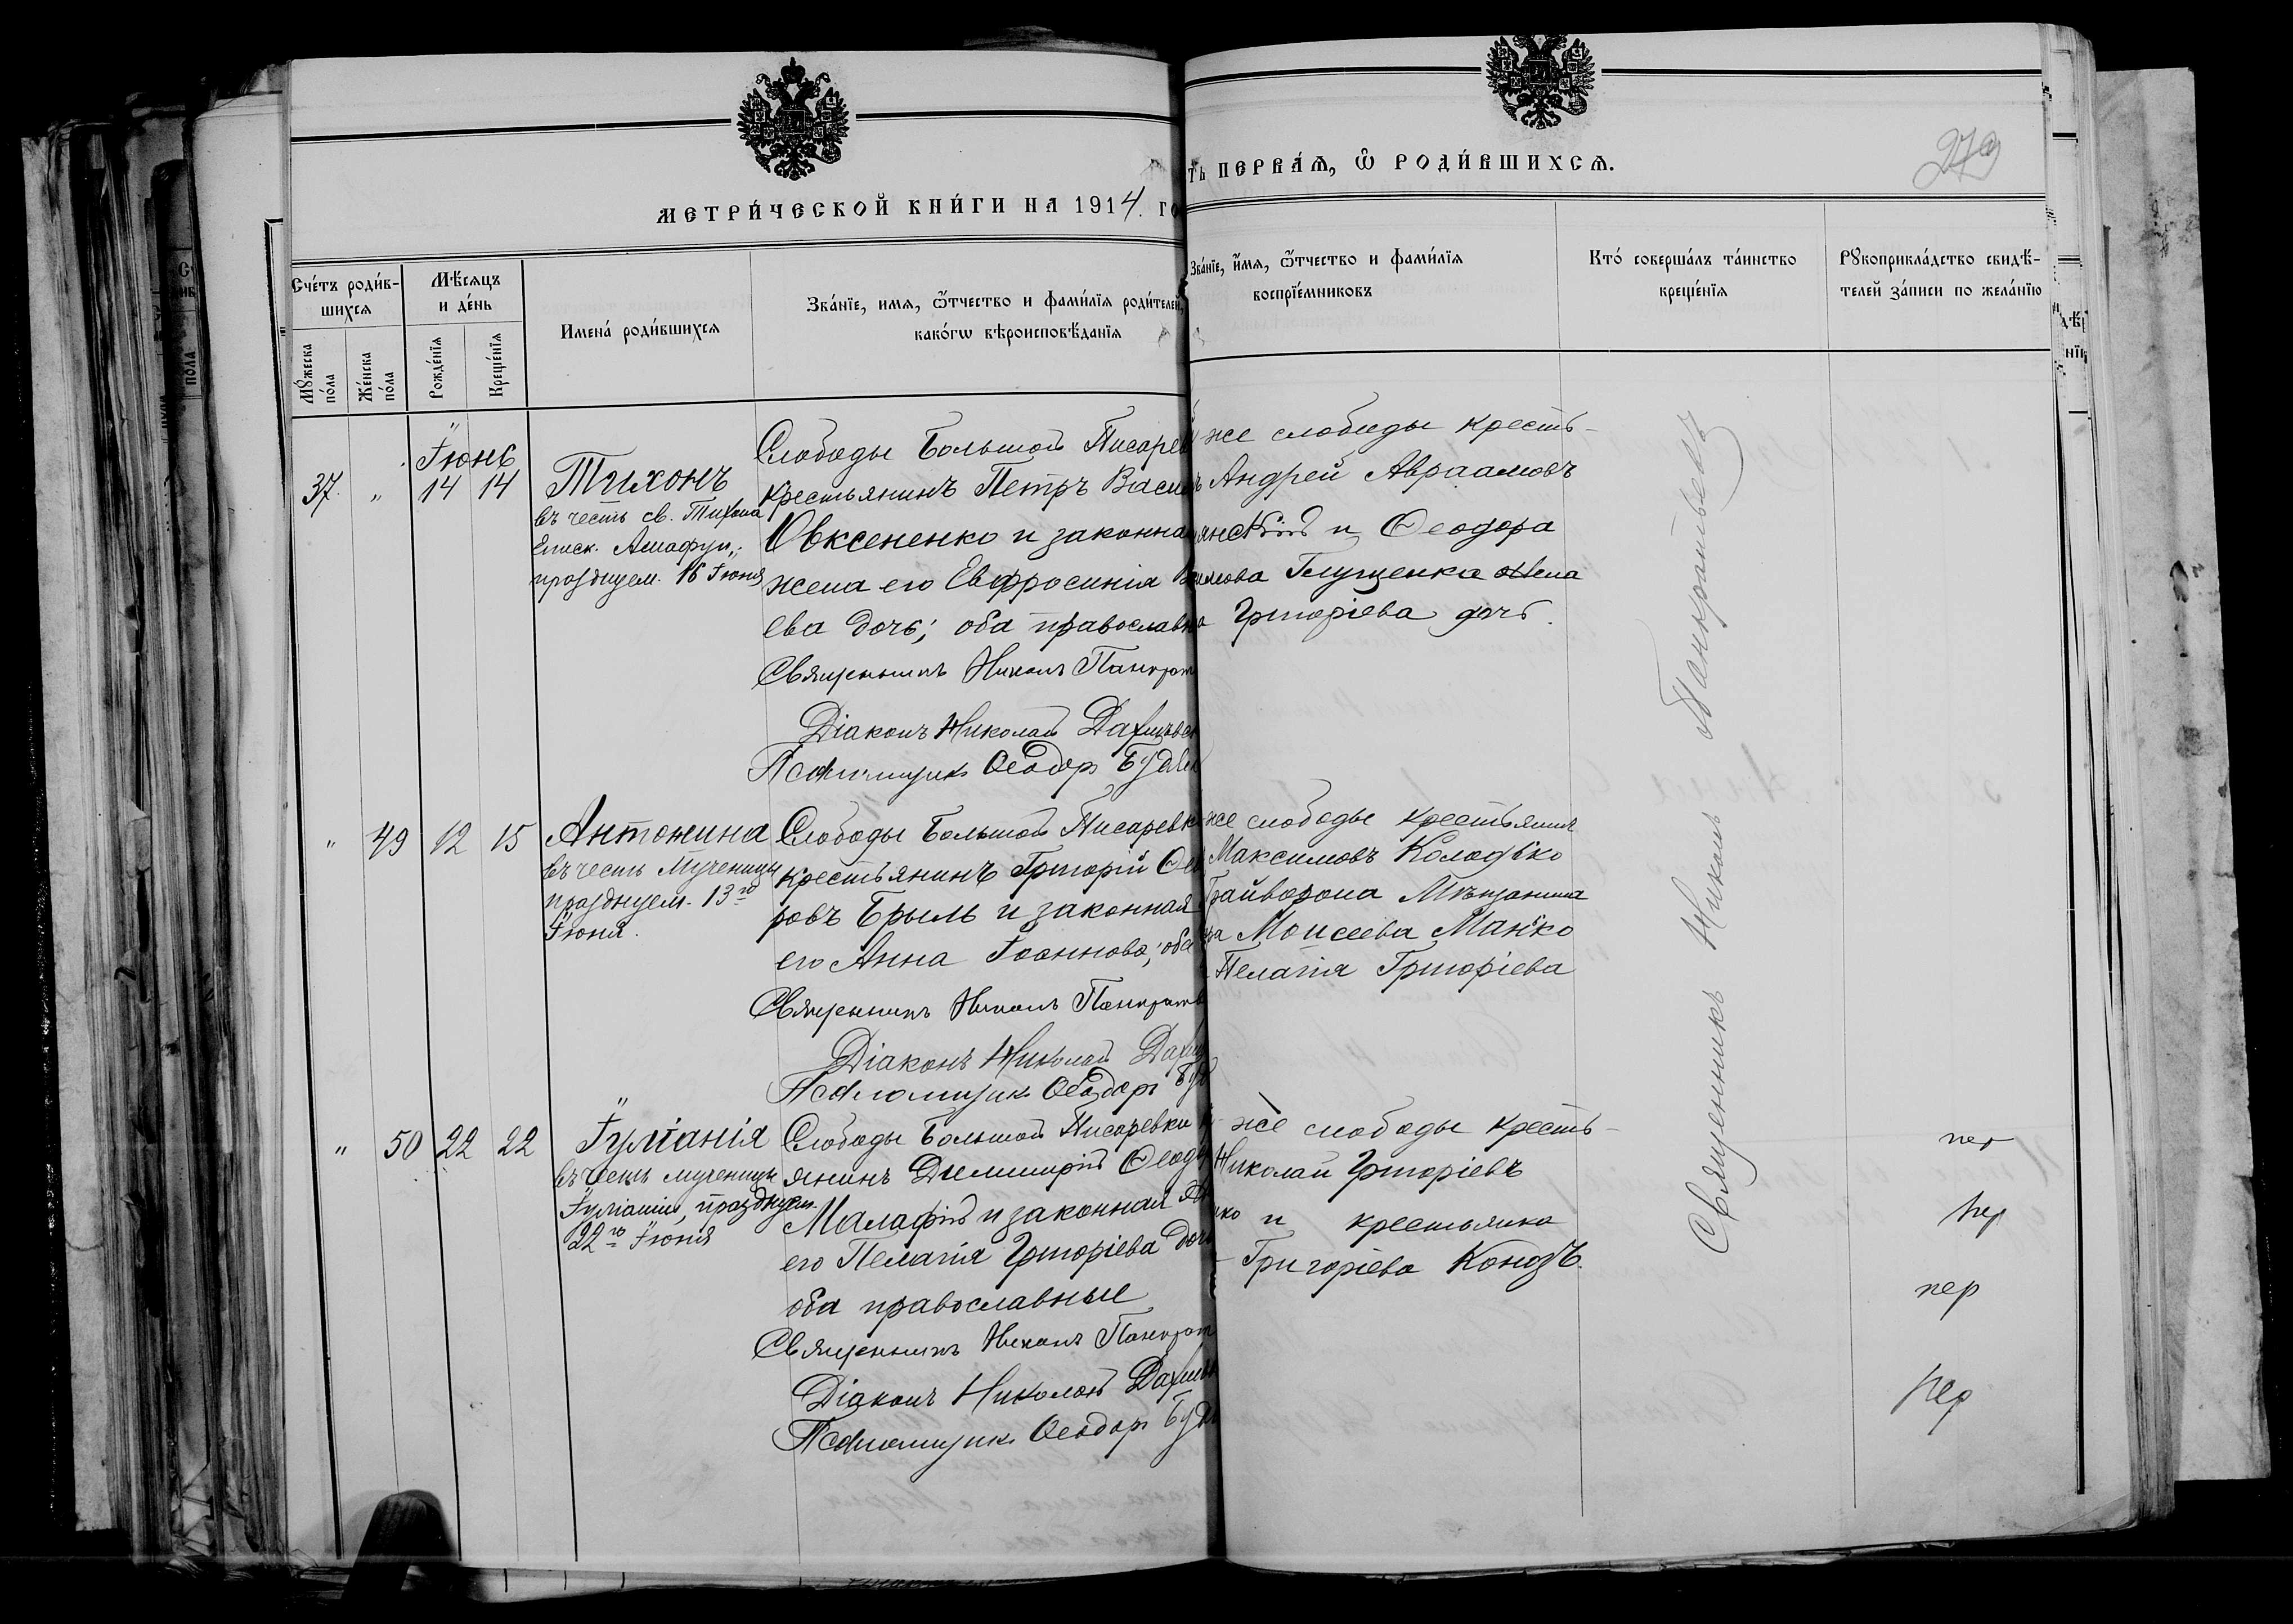 МЕТРИ́ЧЕСКОЙ КНИ́ГИ НА 1914. ГО
ТЬ ПЕРВА́Ѧ, Ѿ РОДИ́ВШИХСѦ.
279
Сче́тъ роди́в-
шихсѧ
Мꙋ́жеска
по́ла
Же́нска
по́ла
Мѣ́сѧцъ
и де́нь
Рожде́нїѧ
Креще́нїѧ
Имена́ роди́вшихсѧ
Зва́нїе, имѧ, ѻ҆́тчество и фами́лїѧ роди́телей,
како́гѡ вѣроисповѣ́данїѧ
Зва́нїе, и҆́мѧ, ѻ҆́тчество и фами́лїѧ
воспрїе́мниковъ
Кто́ соверша́лъ та́инство
креще́нїѧ
Рꙋкоприкла́дство свидѣ́-
телей за́писи по жела́нїю
Іюнь
37. " 14 14
Тихонъ
въ честь св. Тихона
Еписк. Амафун.,
празднуем. 16 Іюня
Слободы Большой Писарев
крестьянинъ Петръ Васил
Овксененко и законна
жена его Евфросинія В
ева дочь; оба православн
Священникъ Никонъ Панкрат
Діаконъ Николай
Псаломщикъ Ѳеодоръ
же слободы кресть-
Андрей Авраамовъ
и Ѳеодора
Глущенка жена
Григоріева дочь.
" 49 12 15
Антонина
въ честь Мученицы
празднуем. 13го
Іюня.
Слободы Большой Писаревк
крестьянинъ Григорій Ѳео
ровъ Брыль и законная
его Анна Іоаннова; оба
Священникъ Никонъ Панкратъ
Діаконъ Николай
Псаломщикъ Ѳеодоръ
же слободы крестьянинъ
Максимовъ Колодько
Грайворона Мѣщанина
Моисеева Манько
Пелагія Григоріева
" 50 22 22
Іуліанія
въ честь мученицы
Іуліаніи, празднуем.
22го Іюня
Слободы Большой Писаревки
янинъ Димитрій Ѳеод
Малафій и законная
его Пелагія Григоріева доч
оба православные
Священникъ Никонъ Панкрат
Діаконъ Николай
Псаломщикъ Ѳеодоръ
же слободы кресть-
Николай Григоріевъ
нко и крестьянка
Григоріева
Священникъ Никонъ Панкратьевъ
пер
пер
пер
пер